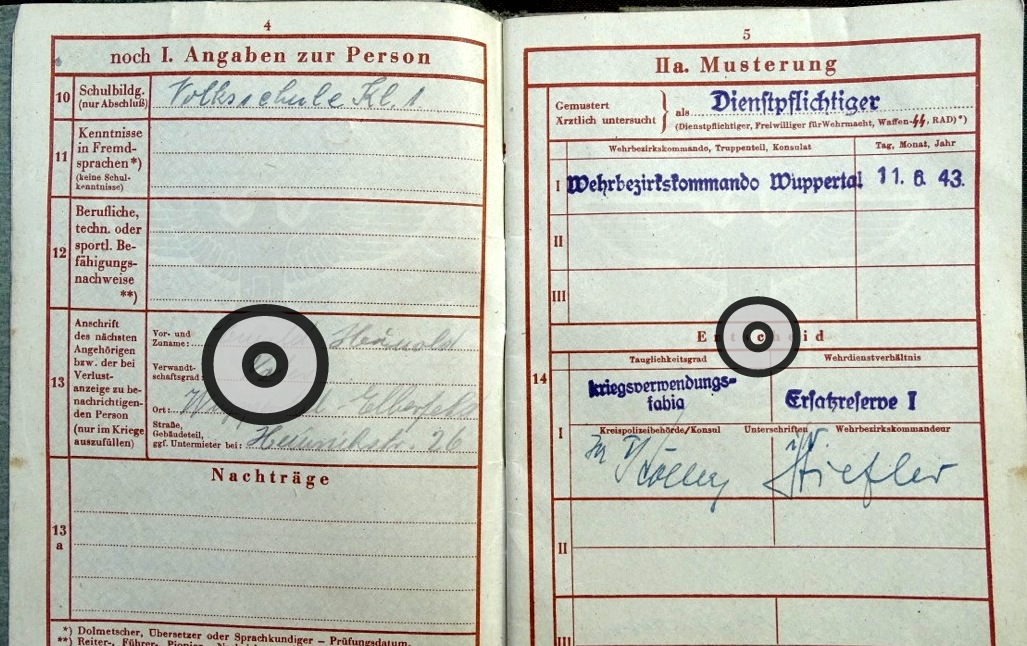 4
noch I. Angaben zur Person
10 Schulbildg. (nur Abschluß)
Volksschule Kl. 1
11 Kenntnisse in Fremd-
sprachen*)
(keine Schul-
kenntnisse)
12 Berufliche,
techn. oder
sportl. Be-
fähigungs-
nachweise
**)
13 Anschrift
des nächsten
Angehörigen
bzw. der bei
Verlust-
anzeige zu be-
nachrichtigen-
den Person
(nur im Kriege
auszufüllen)
Vor- und
Zuname:
Verwandt-
schaftsgrad:
Ort: Elberfeld
Straße,
Gebäudeteil,
ggf. Untermieter bei: Heinrichstr. 26
Nachträge
13
a
*) Dolmetscher, Übersetzer oder Sprachkundiger – Prüfungsdatum.
5
IIa. Musterung
Gemustert
Ärztlich untersucht } als Dienstpflichtiger
(Dienstpflichtiger, Freiwilliger für Wehrmacht, Waffen-ϟϟ, RAD)*)
Wehrbezirkskommando, Truppenteil, Konsulat Tag, Monat, Jahr
I Wehrbezirkskommando Wuppertal 11. 6. 43.
II
III
14
Tauglichkeitsgrad Wehrdienstverhältnis
kriegsverwendungs-
fähig Ersatzreserve I
I Kreispolizeibehörde/Konsul Unterschriften Wehrbezirkskommandeur
II
III